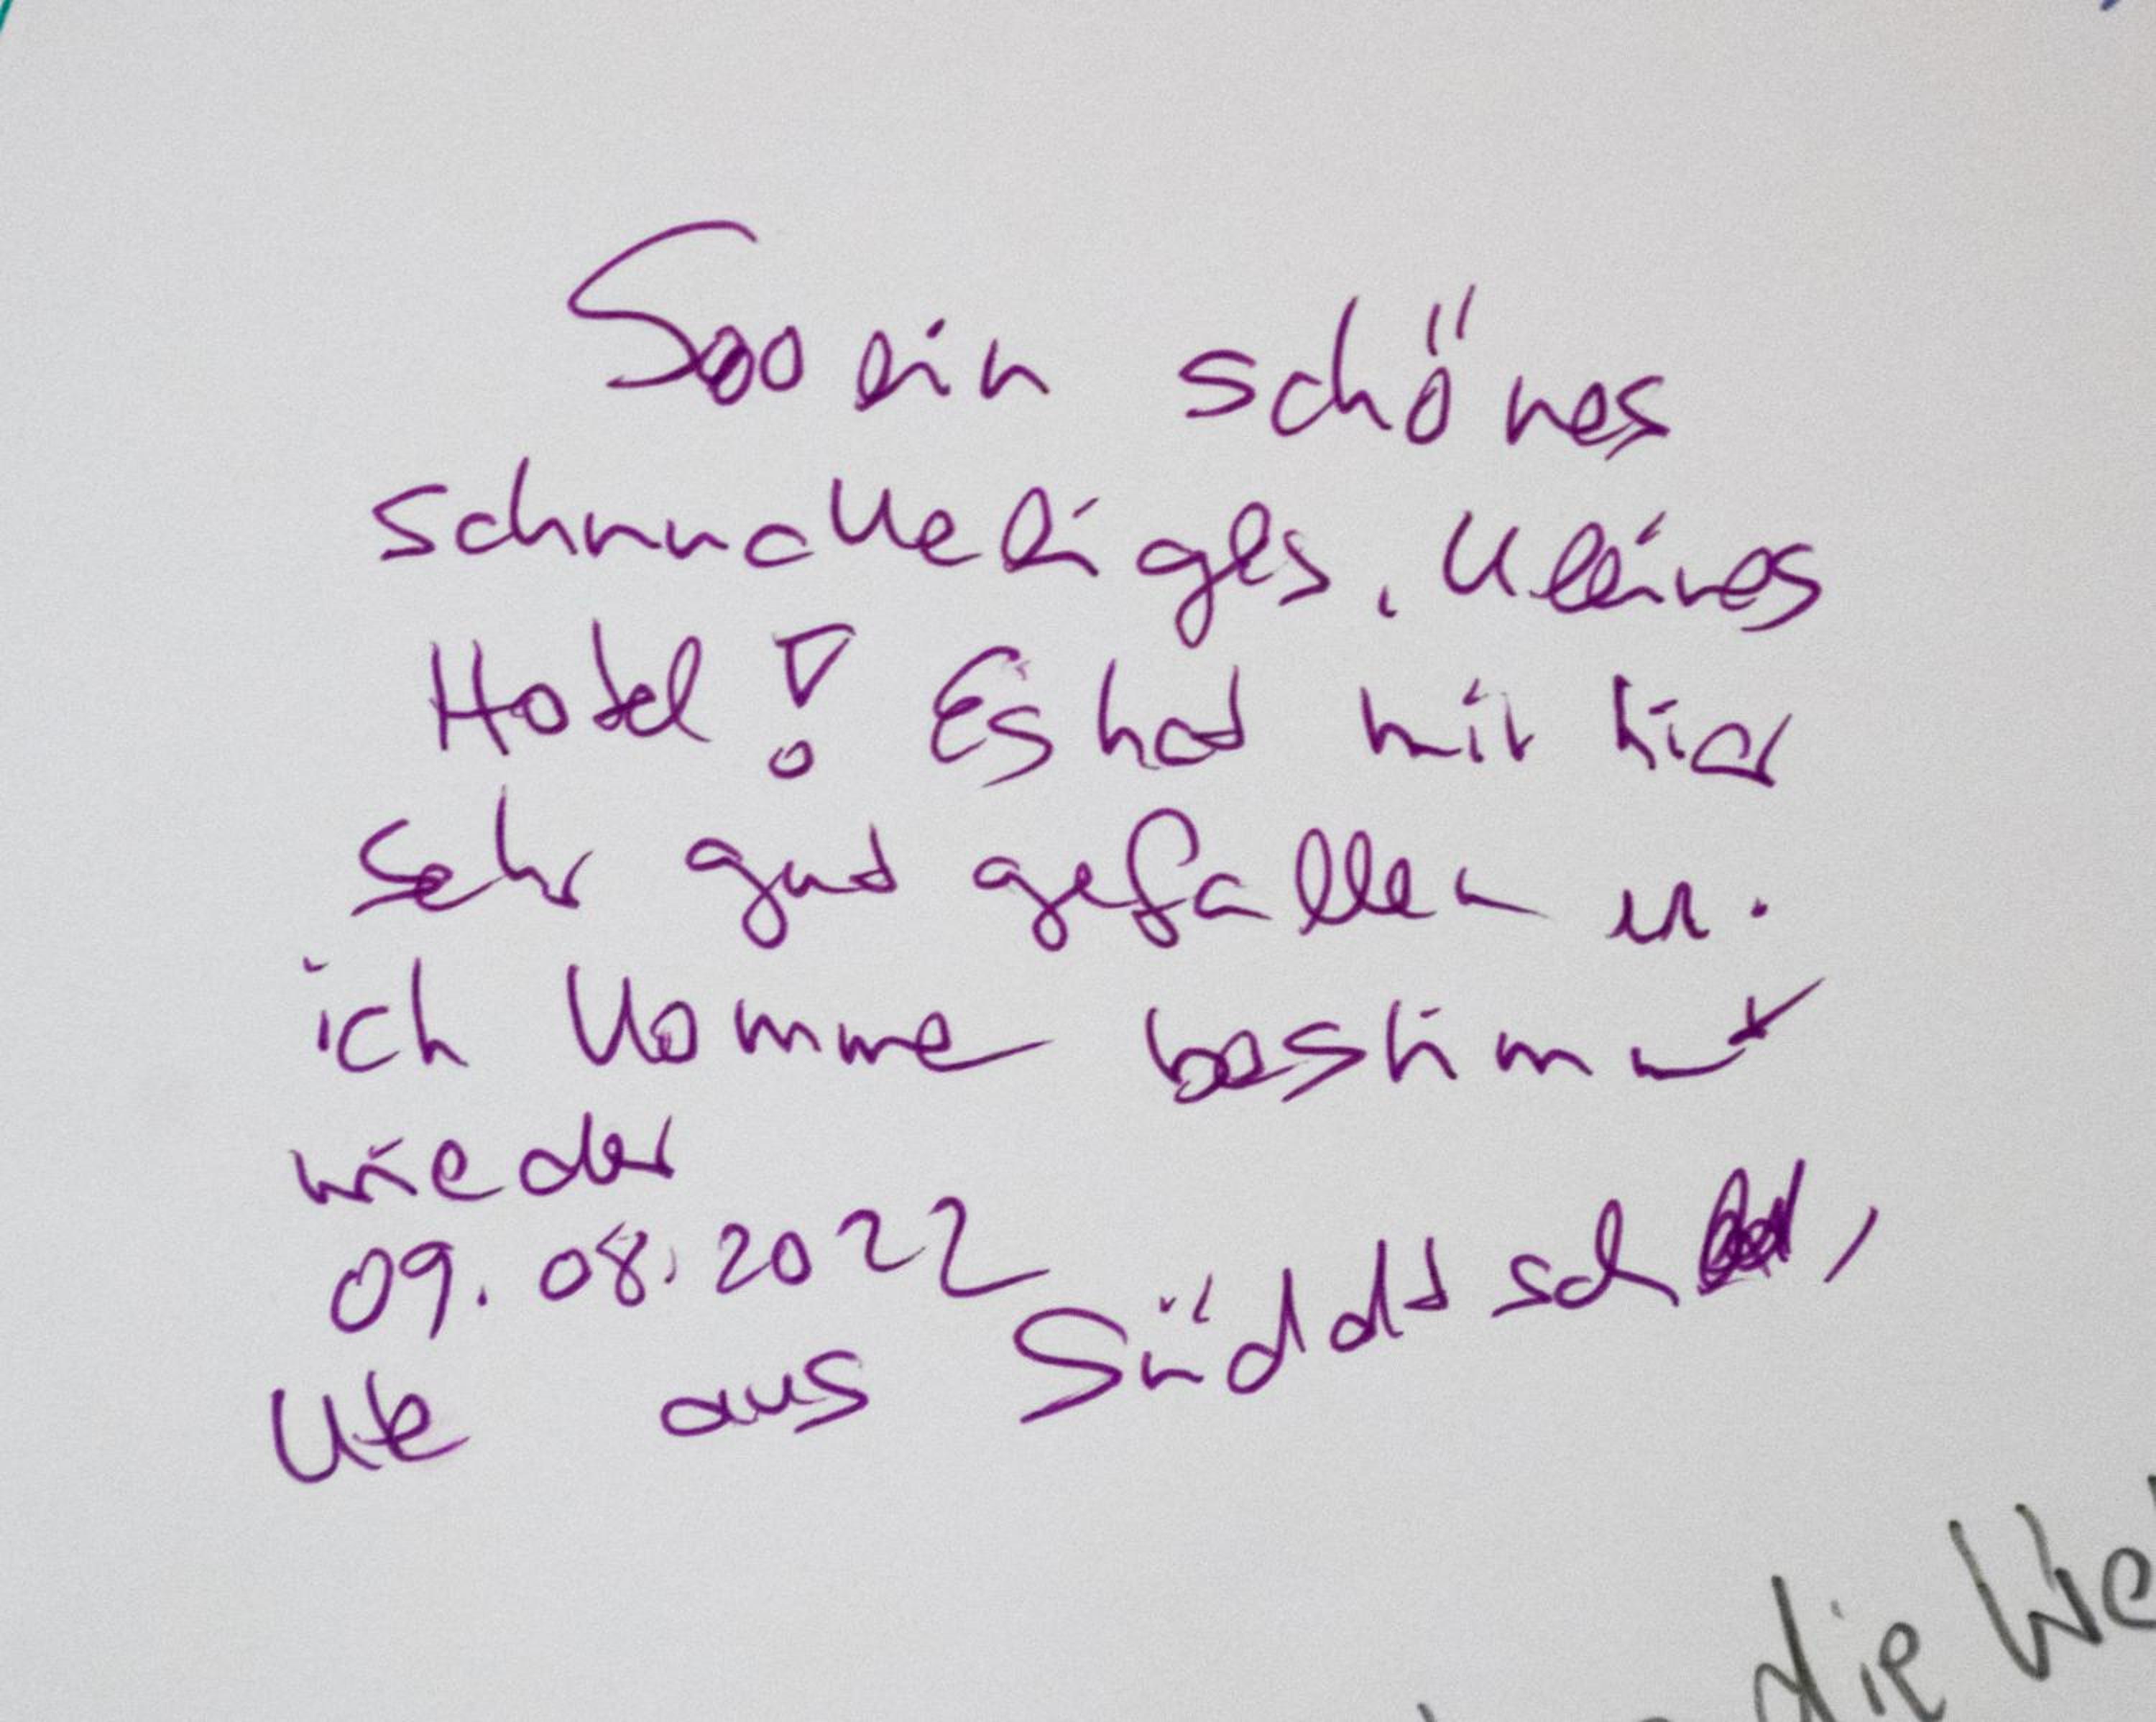 Sooo ein schönes
schnuckeliges, kleines
Hotel! Es hat mir hier
sehr gut gefallen u.
ich komme bestimmt
wieder
09.08.2022
Ute aus Süddtschld,
die We